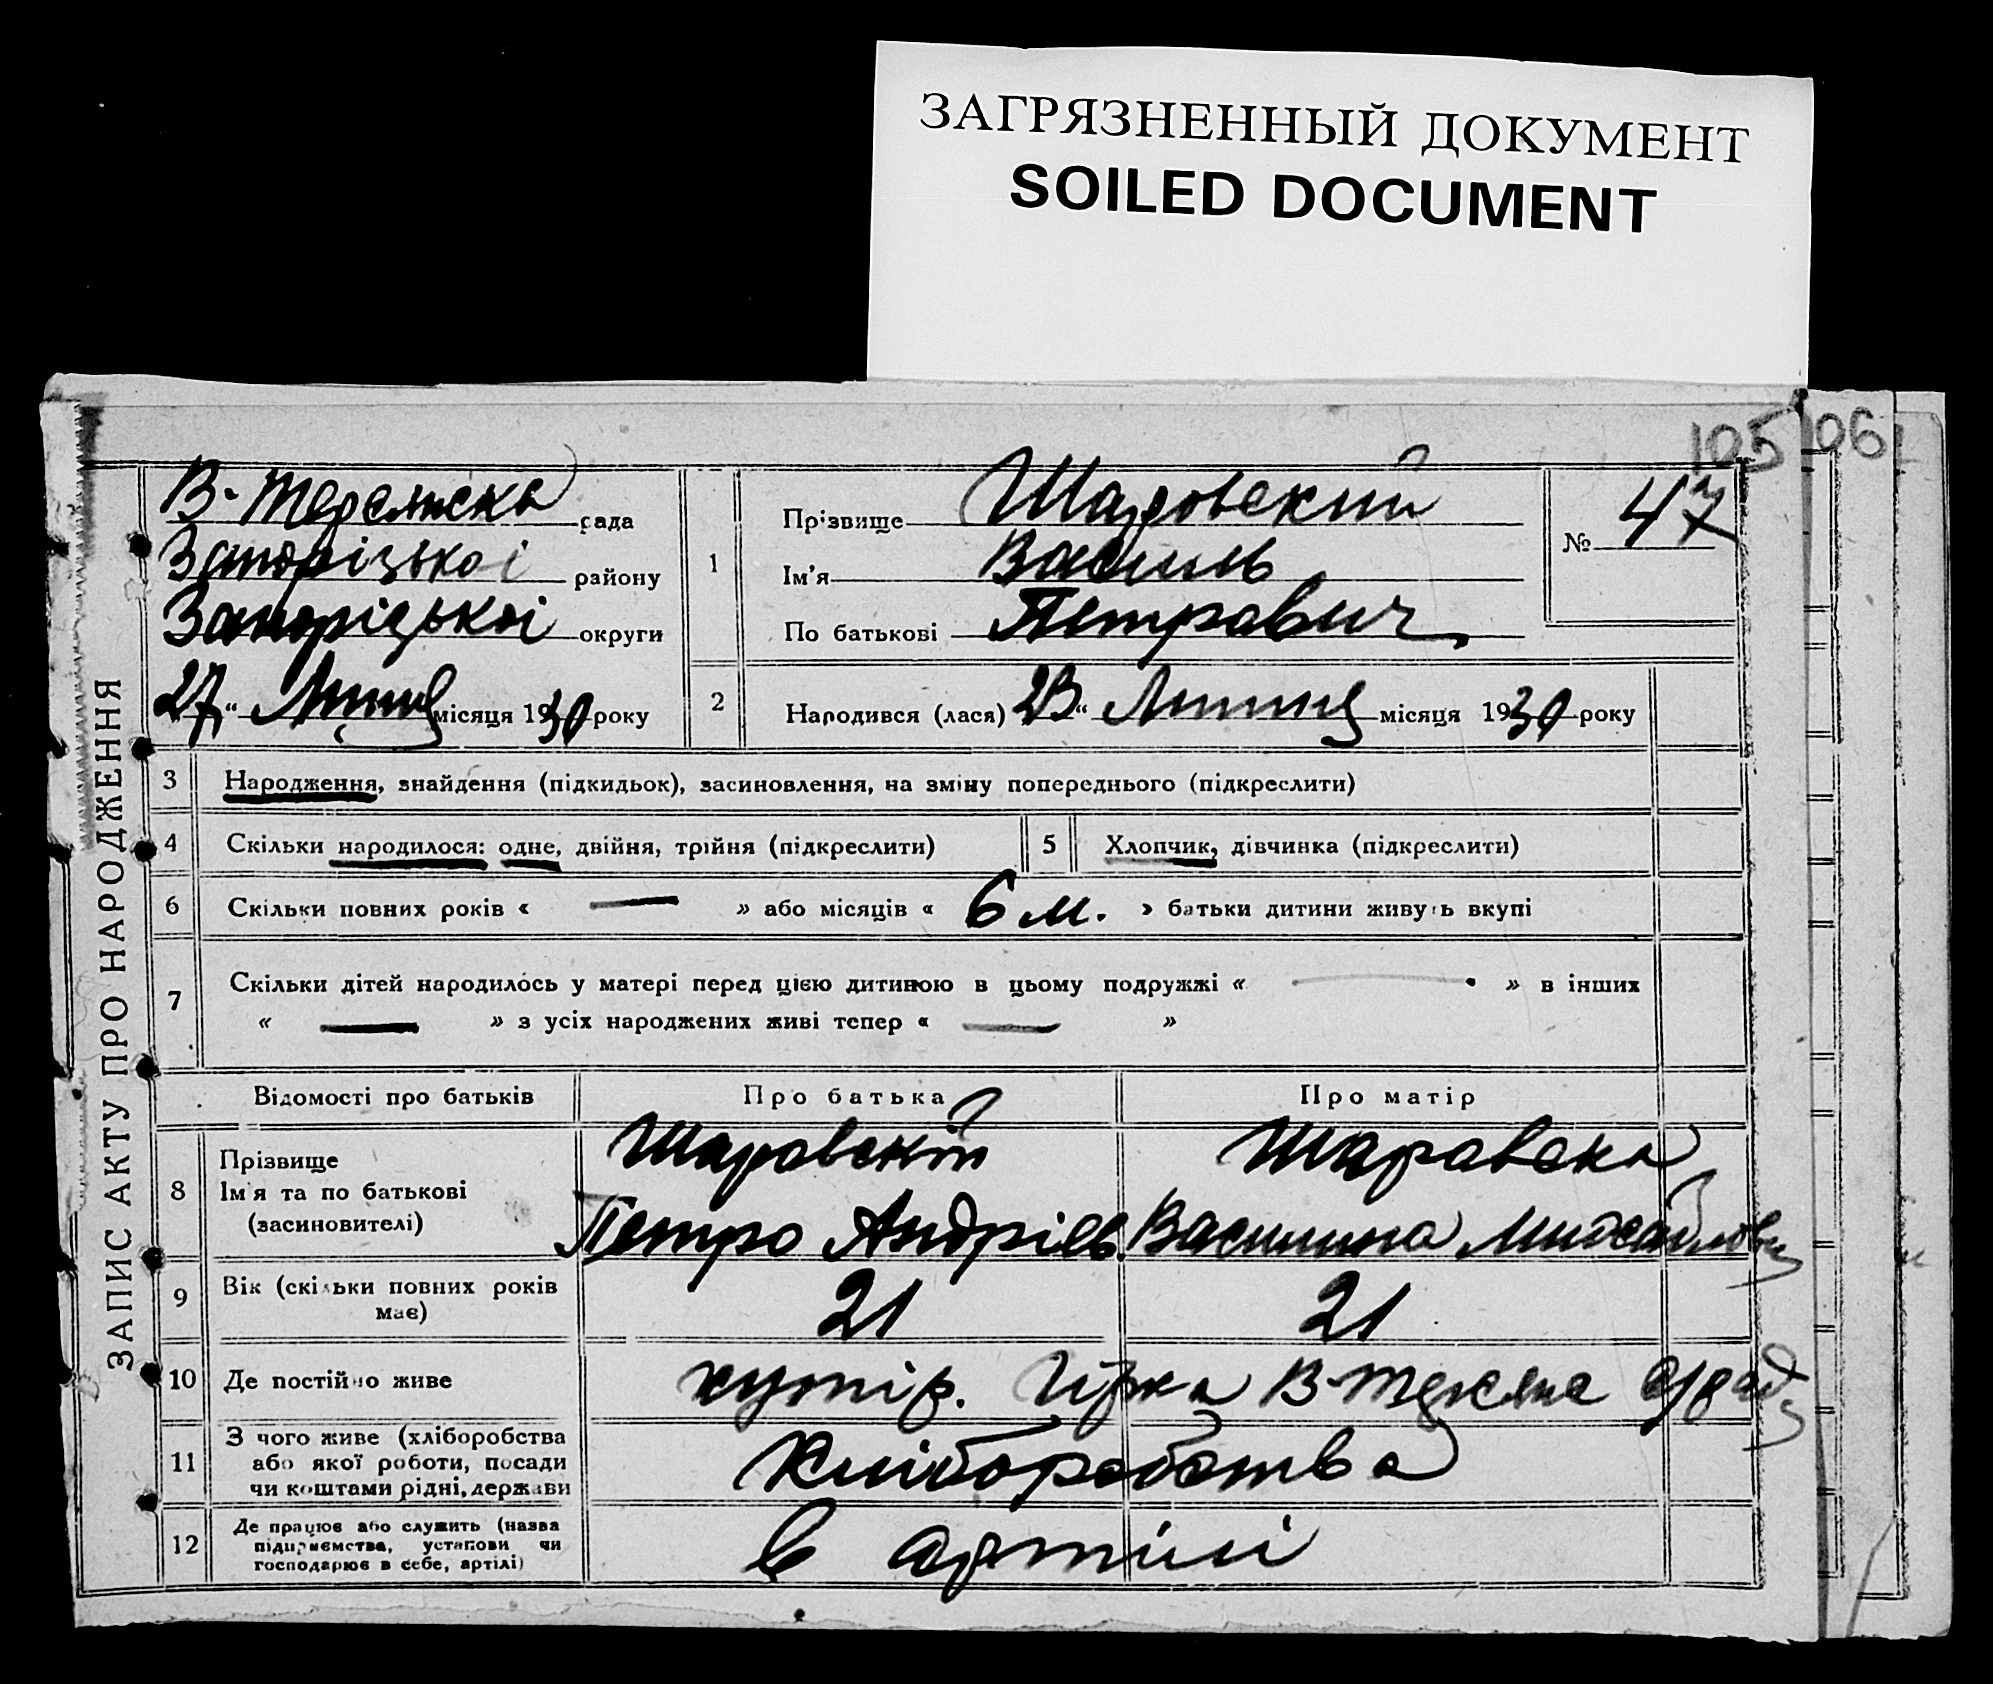 ЗАГРЯЗНЕННЫЙ ДОКУМЕНТ
SOILED DOCUMENT
105 106
ЗАПИС АКТУ ПРО НАРОДЖЕННЯ
рада
Запоріцькоі району
Запоріцькоі округи
27 " Липня місяця 1930 року
1
Прізвище Шаровский
Ім'я Василь
По батькові Петрович
№ 47
2 Народився (лася) 23 " Липня місяця 1930 року
3 Народження, знайдення (підкидьок), засиновлення, на зміну попереднього (підкреслити)
4 Скільки народилося: одне, двійня, трійня (підкреслити) 5 Хлопчик, дівчинка (підкреслити)
6 Скільки повних років « — » або місяців « 6 м. » батьки дитини живуть вкупі
7 Скільки дітей народилось у матері перед цією дитиною в цьому подружжі « — » в інших
« — » з усіх народжених живі тепер « — »
Відомості про батьків Про батька Про матір
8 Прізвище Шаровскій Шаровска
Ім'я та по батькові
(засиновителі) Петро Андріев. Василина Михайловн
9 Вік (скільки повних років має) 21 21
10 Де постійно живе хутір.
11 З чого живе (хліборобства
або якої роботи, посади
чи коштами рідні, держави Хліборобства
12 Де працює або служить (назва
підприємства, установи чи
господарює в себе, артілі) в артілі